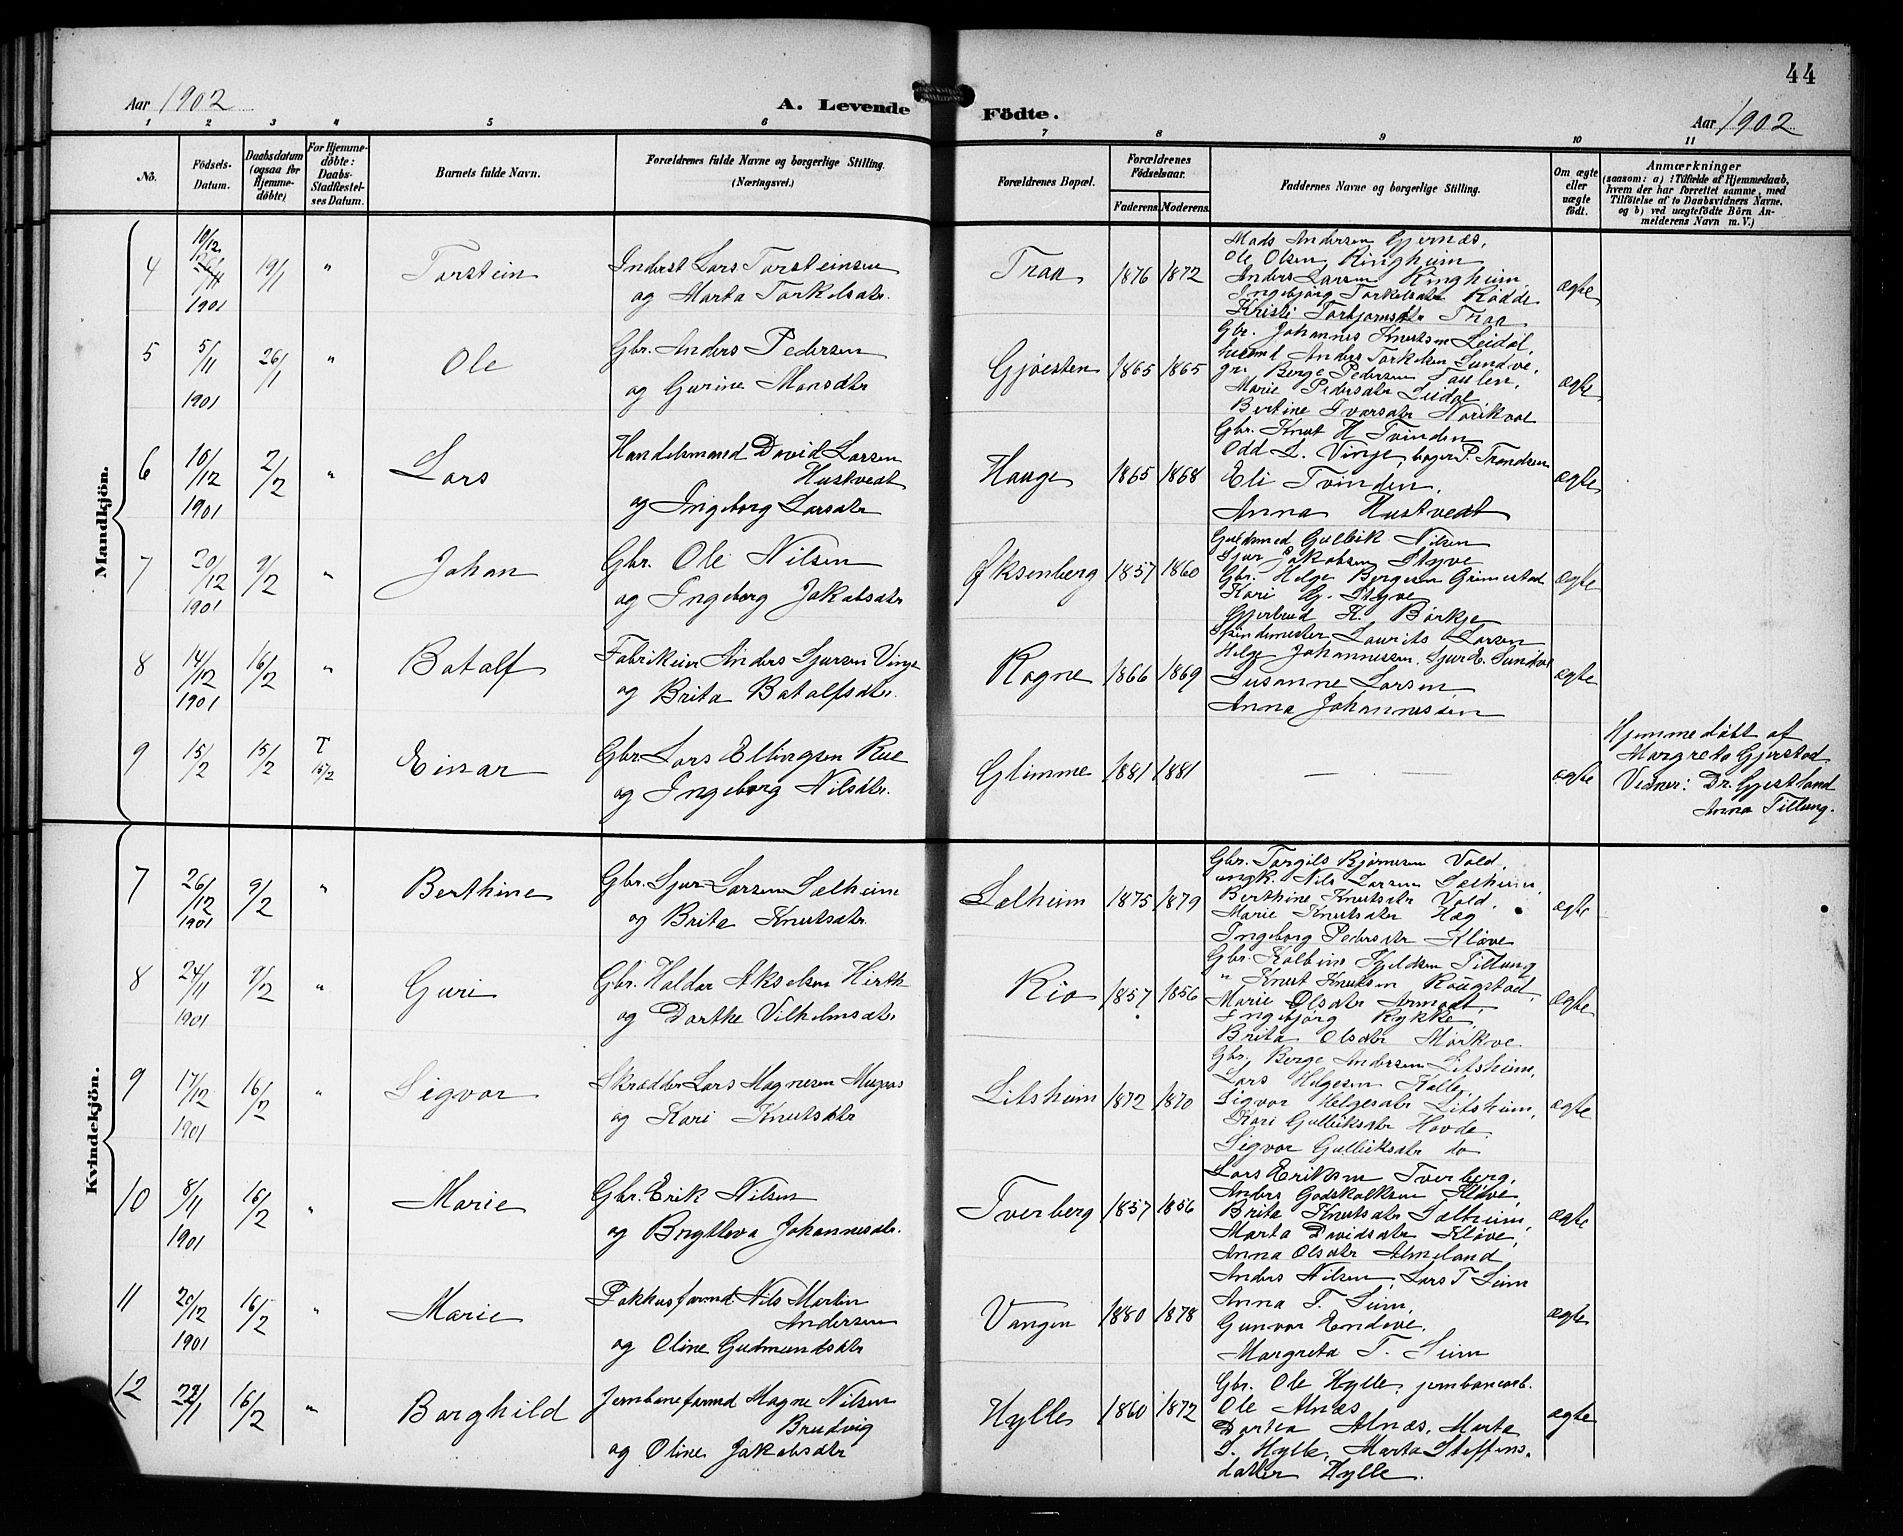 44
Aar 1902
A. Levende
Födte.
Aar 1902
1 2 3 4 5 6 7 8 9 10 11
No.
Födsels-
Datum.
Daabsdatum
(ogsaa for
Hjemme-
döbte)
For Hjemme-
döbte:
Daabs-
Stadfæstel-
ses Datum.
Barnets fulde Navn.
Forældrenes fulde Navne og borgerlige Stilling.
(Næringsvei.)
Forældrenes Bopæl.
Forældrenes
Födselsaar.
Faderens. Moderens.
Faddernes Navne og borgerlige Stilling.
Om ægte
eller
uægte
født.
Anmærkninger
(saasom: a) i Tilfælde af Hjemmedaab,
hvem der har forrettet samme, med
Tilföielse af to Daabsvidners Navne,
og b) ved uægtefödte Börn An-
melderens Navn m. V.)
Mandkjön.
4 10/12 1901 19/1 " Torstein
Inderst Lars Torsteinsen
og Marta Torkelsdtr.
Traa 1876 1872
Mads Andersen Gjernæs,
Ole Olsen Ringheim
Anders Larsen Ringheim
Ingebjörg Torkelsdtr Rödde
Kristi Torbjornsdtr Traa
ægte
5 5/11 1901 26/1 " Ole
Gbr. Anders Pedersen
og Gurine Monsdtr
Gjøesten 1865 1865
Gbr. Johannes Knutsen Leidal,
Anders Torkelsen Sundve,
Berge Pedersen
Marie Pedersdtr Leidal
Bertine Ivarsdtr
ægte
6 16/12 1901 2/2 " Lars
Handelsmand David Larsen
Hustvedt
og Ingeborg Larsdtr
Hauge 1865 1868
Gbr. Knut H Tvinden
Odd L. Vinje, bager P. Trondsen
Eli Tvinden,
Anna Hustvedt
ægte
7 20/12 1901 9/2 " Johan
Gbr. Ole Nilsen
og Ingeborg Jakobsdtr
Øksenberg 1857 1860
Guldsmed Gulleik Nilsen
Sjur Jakobsen Styve
Gbr. Helge Bergesen Grimestad
Kari G. Styve
Gjertrud K. Börkje
ægte
8 14/12 1901 16/2 " Botolf
Fabrikeier Anders Sjursen Vinje
og Brita Botolfsdtr.
Rogne 1866 1869
Spindemester Laurits Larsen
Helge Johannessen, Sjur E. Sundve
Susanne Larsen
Anna Johannessen
ægte
9 15/2 15/2 T 15/2 Einar
Gbr. Lars Ellingsen Rue
og Ingeborg Nilsdtr.
Glimme 1881 1881
— —
ægte
Hjemmedöbt af
Margreta Gjerstad
Vidner: Dr. Gjestland
Anna Tillung.
Kvindekjön.
7 26/12 1901 9/2 " Berthine
Gbr. Sjur Larsen Sælheim
og Brita Knutsdtr
Sælheim 1875 1879
Gbr. Torgils Bjørnesen Vold,
ungk. Nils Larsen Sælheim,
Berthine Knutsdtr Vold.
Marie Knutsdtr Hæg
Ingeborg Pedersdtr Kløve
ægte
8 24/11 1901 9/2 " Guri
Gbr. Haldor Akselsen Hirth
og Dorthe Vilhelmsdtr
Rio 1857 1856
Gbr. Kolbein Kjeldsen Tillung
" Knut Knutsen Rougstad,
Marie Olsdtr Armodt,
Ingebjörg Rykke,
Brita Olsdtr Mörkve
ægte
9 17/12 1901 16/2 " Sigvor
Skrædder Lars Magnesen
og Kari Knutsdtr
Litsheim 1872 1870
Gbr. Berge Andersen Litsheim,
Lars Helgesen Kolle,
Sigvor Helgesdtr Litsheim,
Kari Gulleiksdtr Hovde
Sigvor Gulleiksdtr do
ægte
10 8/11 1901 16/2 " Marie
Gbr. Erik Nilsen
og Brytteva Johannesdtr.
Tverberg 1857 1856
Lars Eriksen Tverberg,
Anders Godskalksen Kløve,
Brita Knutsdtr Sælheim,
Marta Davidsdtr Kløve,
Anna Olsdtr Almeland
ægte
11 20/12 1901 16/2 " Marie
Pakhusformd Nils Martin
Andersen
og Oline Gudmundsdtr
Vangen 1880 1878
Anders Nilsen, Lars T Seim
Anna T. Seim,
Gunvor Endeve,
Margreta T. Seim
ægte
12 22/1 16/2 " Borghild
Jernbaneformd Magne Nilsen
Brudvig
og Oline Jakobsdtr
Hylle 1860 1872
Gbr. Ole Hylle, jernbanearb.
Ole Alnæs
Dortea Alnæs, Marta
S. Hylle, Marta Steffens-
datter Hylle.
ægte